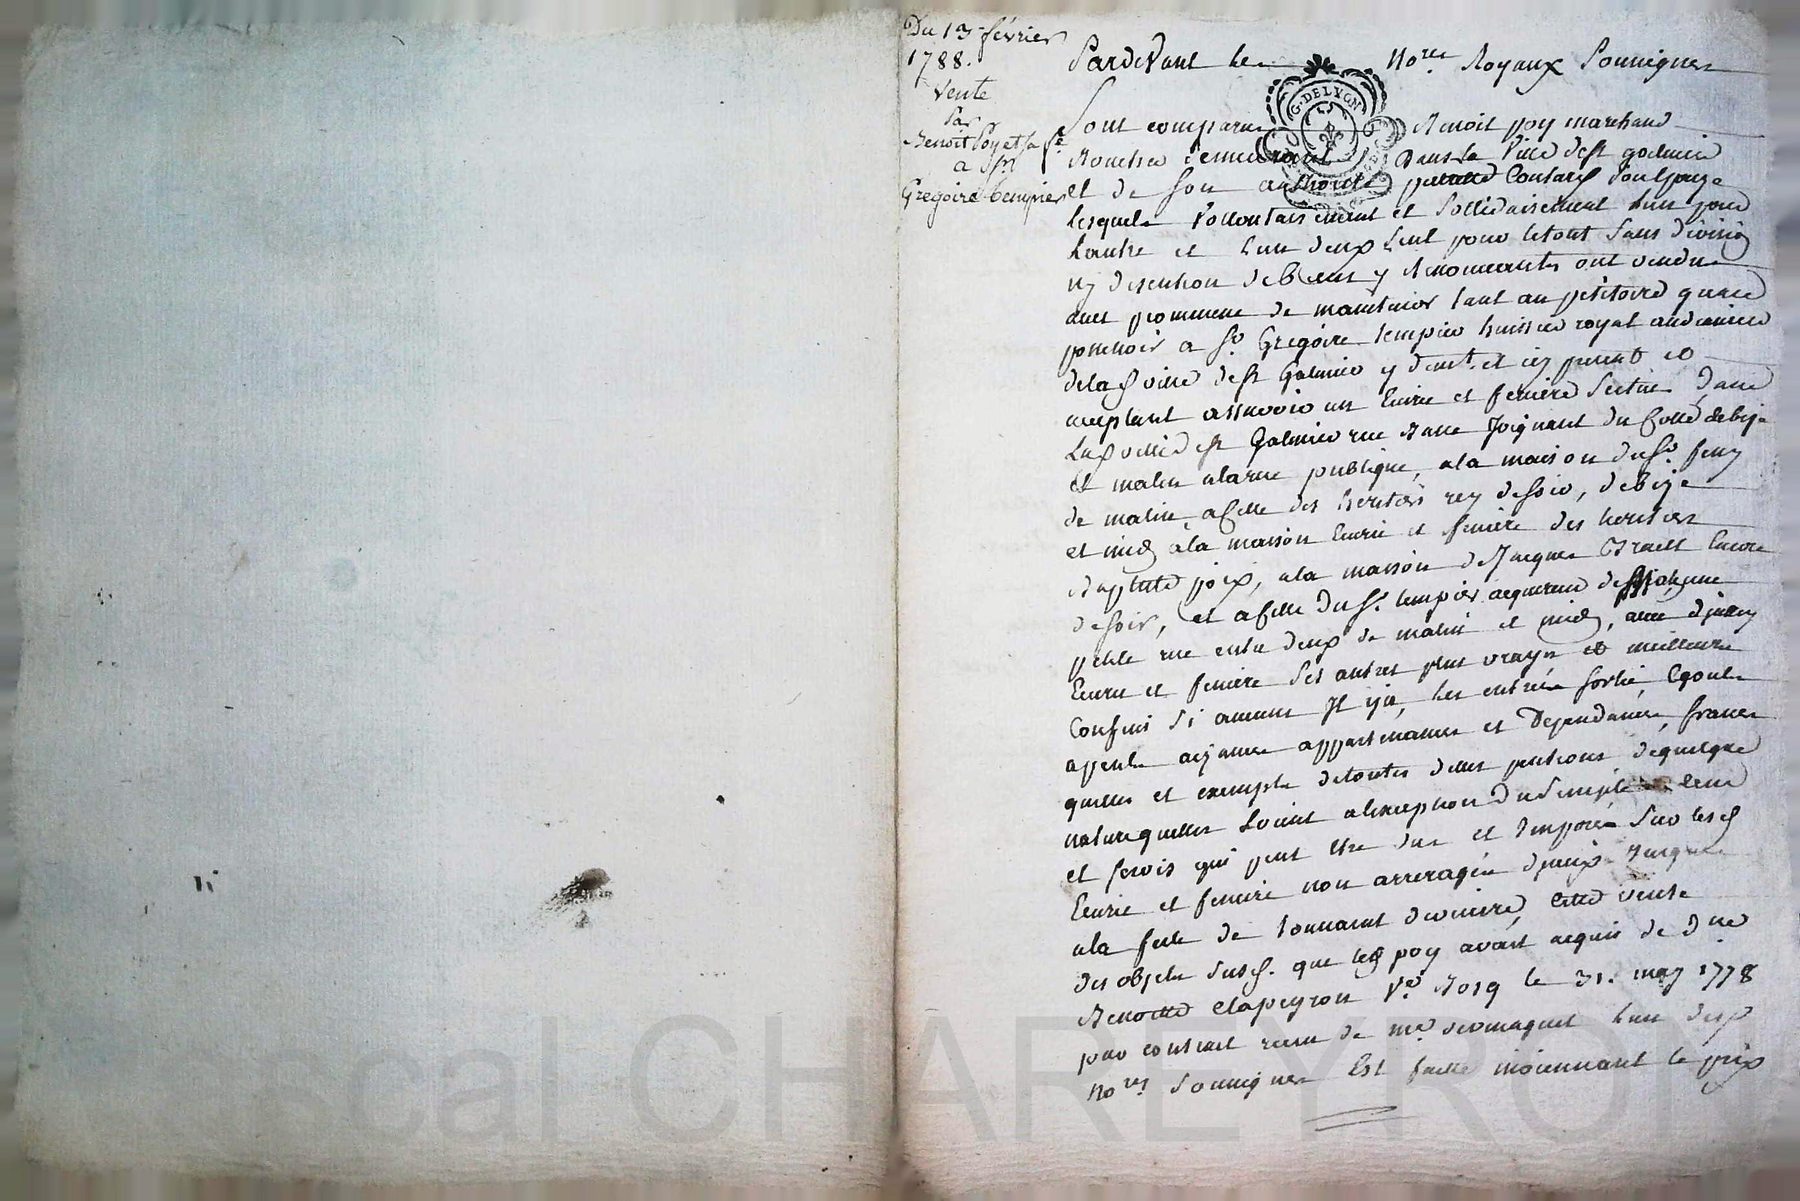 Du 13 février
1788.
Vente
Par
Benoit Poy et sa fe
a Sr
Gregoire tempier
Pardevant les Nores Royaux Soussignes
G. DE LYON
Sont comparus Benoit poy marchand
Boucher demeurant dans la Ville de st galmier
et de son authorité son Epouze
lesquels Vollontairement et Sollidairement l'un pour
l'autre et l'un d'eux seul pour letout Sans division
ny discution de biens y Renonceants ont vendu
avec promesse de maintenir tant au pétitoire qu'au
a Sr Grégoire tempier huissier royal audiancier
de la d ville de st Galmier y demt et icy present et
acceptant un Ecurie et feniere Scitué dans
La d ville de st Galmier rue Joignant du Cotté de bize
et matin ala rue publique, ala maison du Sr
de matin, a celle des heritiers rey de soir, de bize
et midy ala maison Ecurie et feniere des heritiers
ala maison de Jacques Encore
de soir, et a celle du Sr tempier acquereur une
petite rue entre deux de matin et midy,
Ecurie et feniere Ses autres plus vrays et meilleurs
Confins Si aucuns Il y a, Ses entrées sortie, Egouts
appents aizances appartenances et Dépendances, francs
quittes et exempts de toutes dettes pentions de quelque
nature quelles soient alexception du Simple Cens
et servis qui peut Etre du et Imposés Sur lesd
Ecurie et feniere non arreragés jusques
ala fete de tonnaint derniere, Cette vente
des objets Susd. que led poy avait acquis de dme
Benoitte clapeyron Ve le 31. may 1778
par contrat recu de me l'un des
Nores Soussignes Est faitte moiennant le prix
cal CHAREYRON